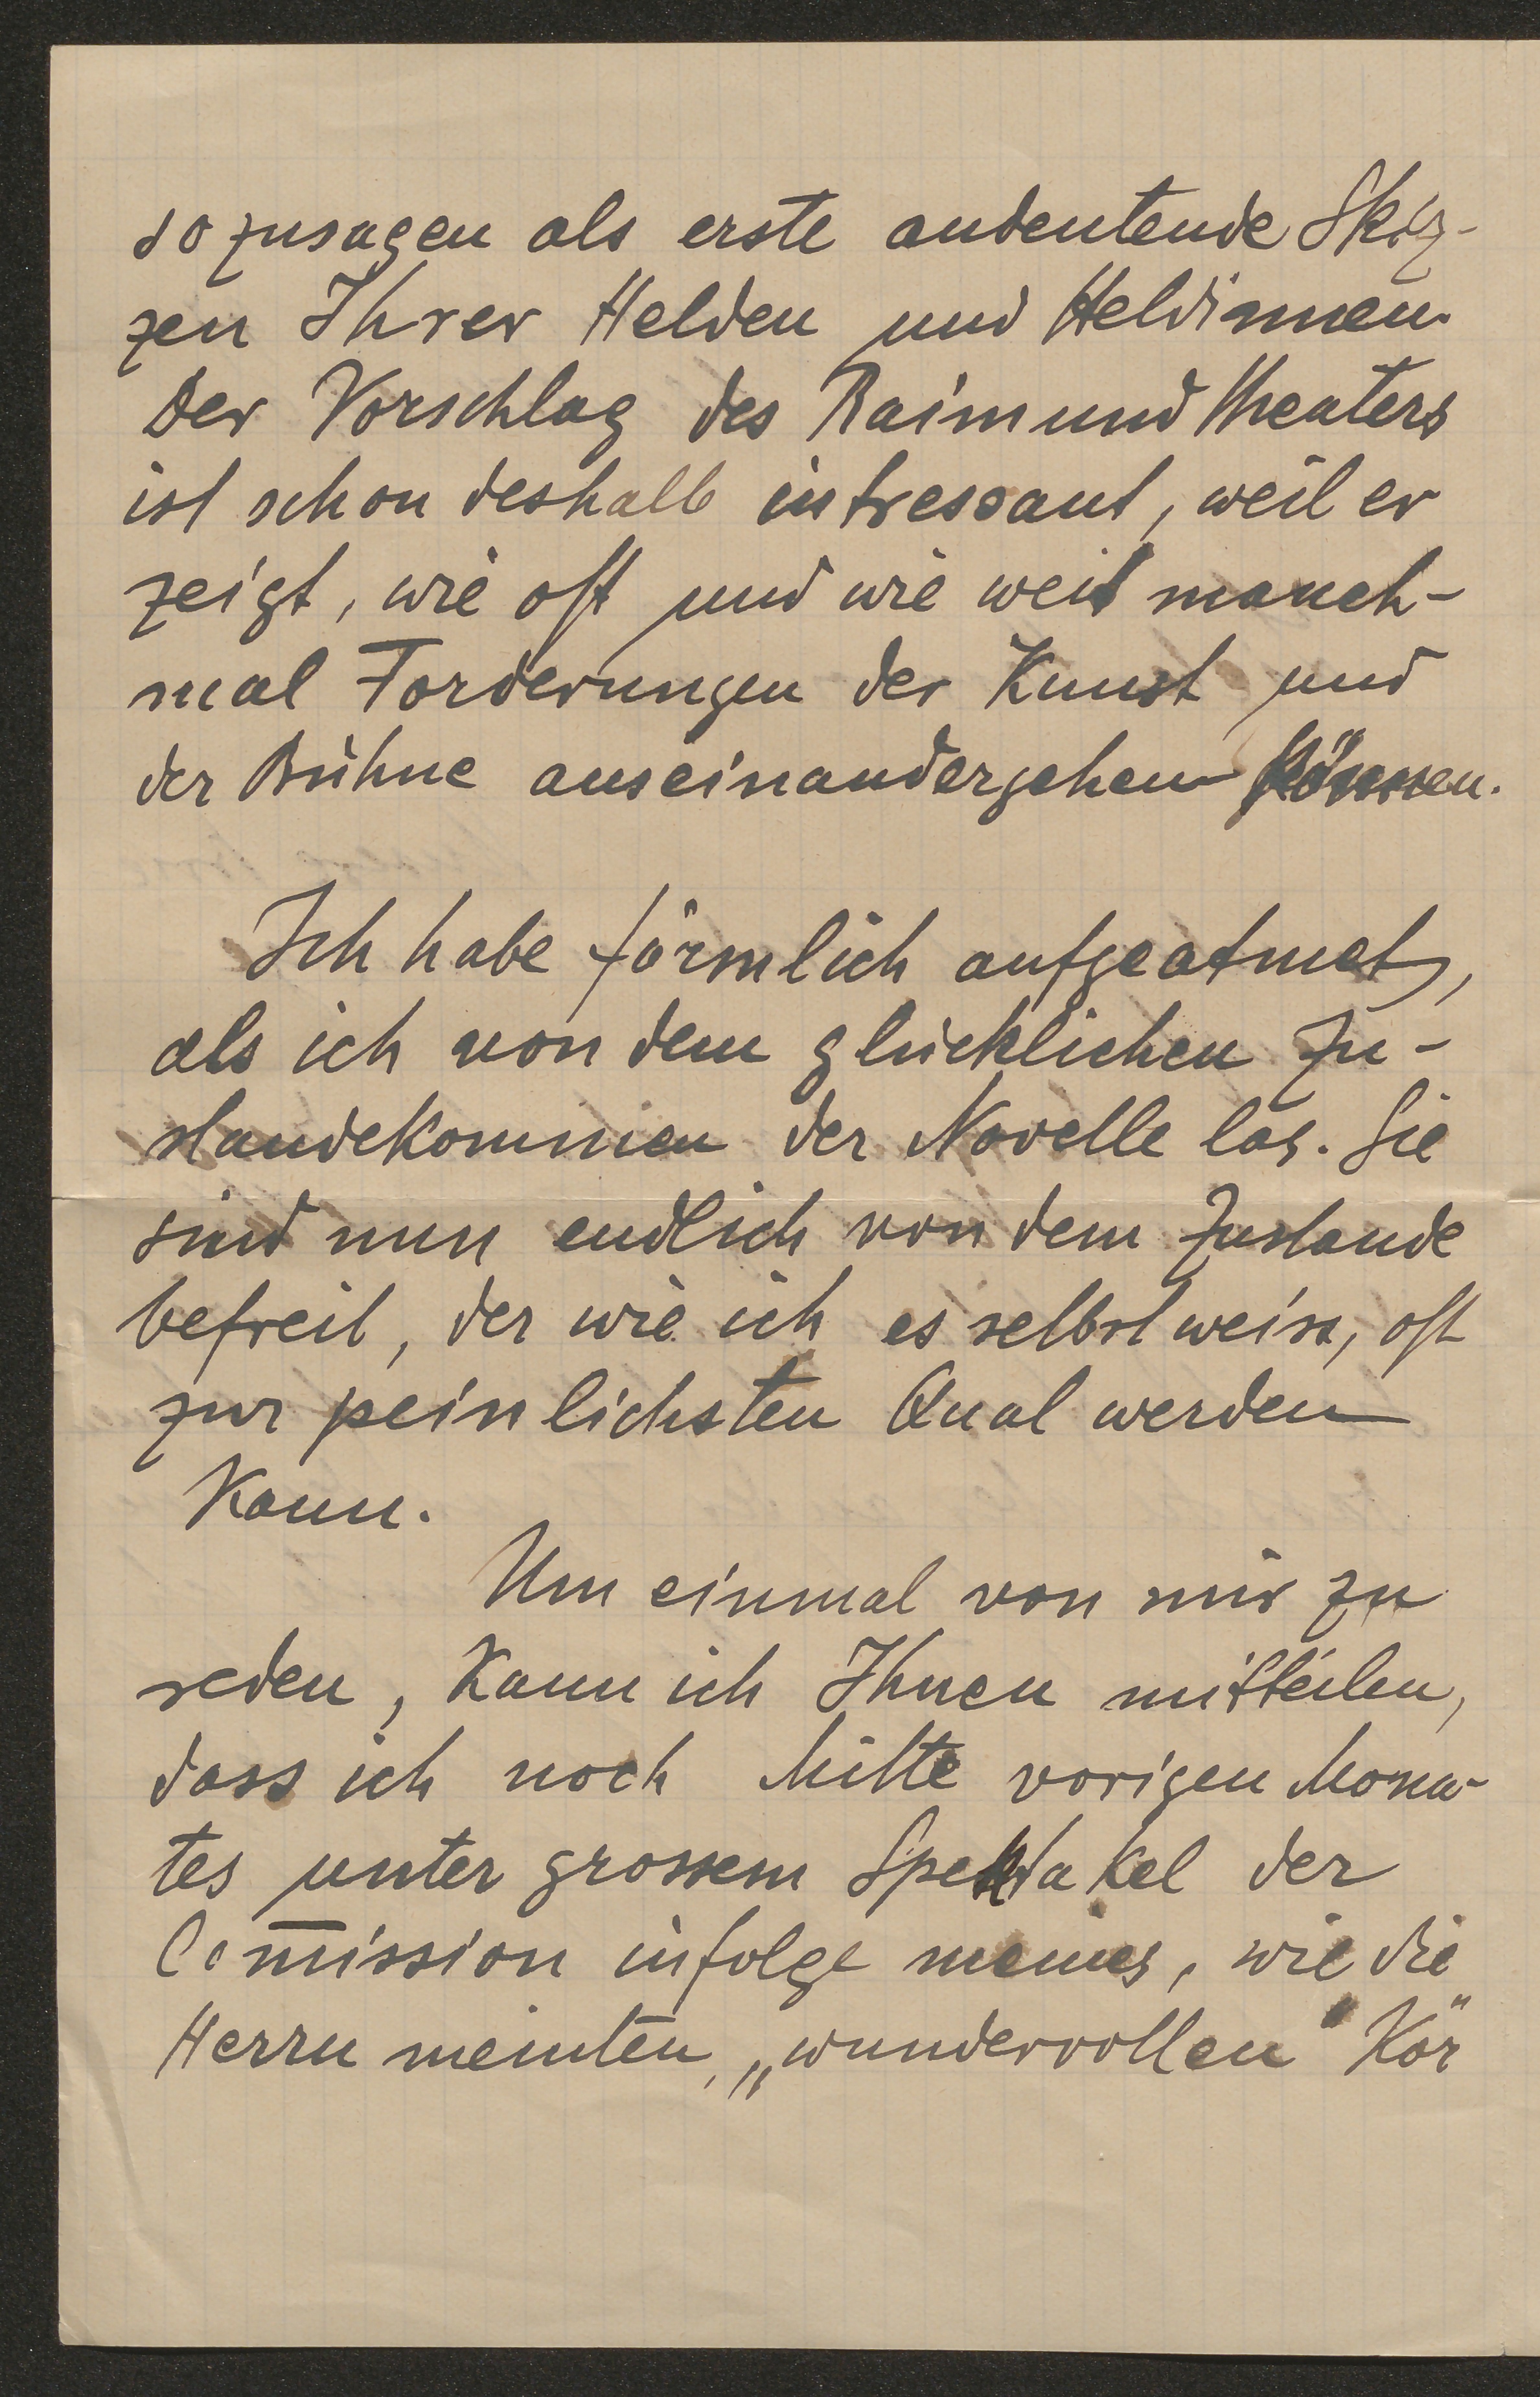 sozusagen als erste andeutende Skiz-
zen Ihrer Helden und Heldinnen.
Der Vorschlag des Raimund Theaters
ist schon deshalb intressant, weil er
zeigt, wie oft und wie weit manch-
mal Forderungen der Kunst und
der Bühne auseinandergehen können.
Ich habe förmlich aufgeatmet,
als ich von dem glücklichen Zu-
standekommen der Novelle las. Sie
sind nun endlich von dem Zustande
befreit, der wie ich es selbst weiss, oft
zur peinlichsten Qual werden
kann.
Um einmal von mir zu
reden, kann ich Ihnen mitteilen,
dass ich noch Mitte vorigen Mona-
tes unter grossem Spektakel der
Com̅ission infolge meines, wie die
Herrn meinten, „wundervollen“ Kör